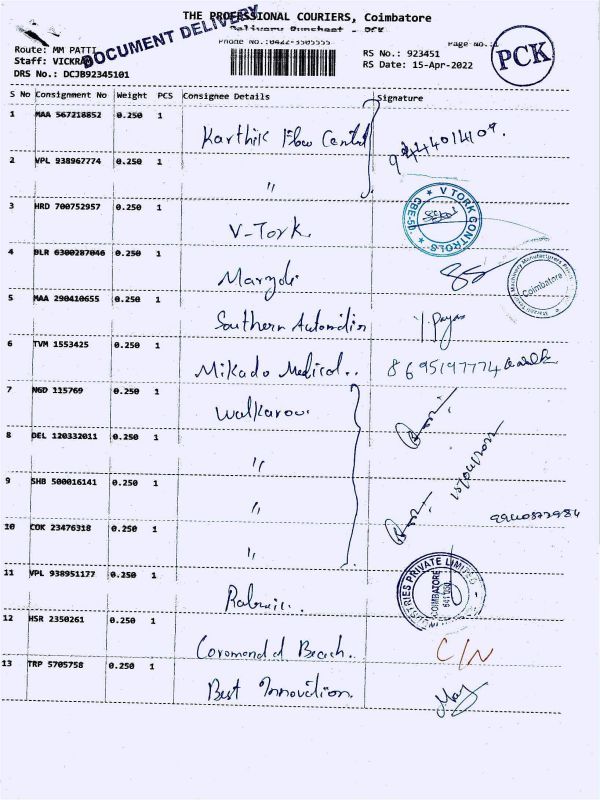 THE PROFESSIONAL COURIERS, Coimbatore
Delivery Runsheet - PCK
DOCUMENT DELIVERY
Phone No.:0422-3505555
Page No.:1
Route: MM PATTI
RS No.: 923451
PCK
Staff: VICKRA
RS Date: 15-Apr-2022
DRS No.: DCJB92345101
S No Consignment No Weight PCS Consignee Details Signature
1 MAA 567218852 0.250 1
Karthik Flow Control 9444014109.
2 VPL 938967774 0.250 1
"
3 HRD 700752957 0.250 1
V-Tork.
V TORK CONTROLS
CBE-50
4 BLR 6300287046 0.250 1
Coimbatore
5 MAA 290410655 0.250 1
Southern
6 TVM 1553425 0.250 1
Mikado Medical.. 8695197774
7 NGD 115769 0.250 1
Walkaroo
8 DEL 120332011 0.250 1
"
15/04/2022
9 SHB 500016141 0.250 1
"
10 COK 23476318 0.250 1
"
11 VPL 938951177 0.250 1
PRIVATE LIMITED
COIMBATORE
12 HSR 2350261 0.250 1
Beach. C/N
13 TRP 5705758 0.250 1
Best Innovation.